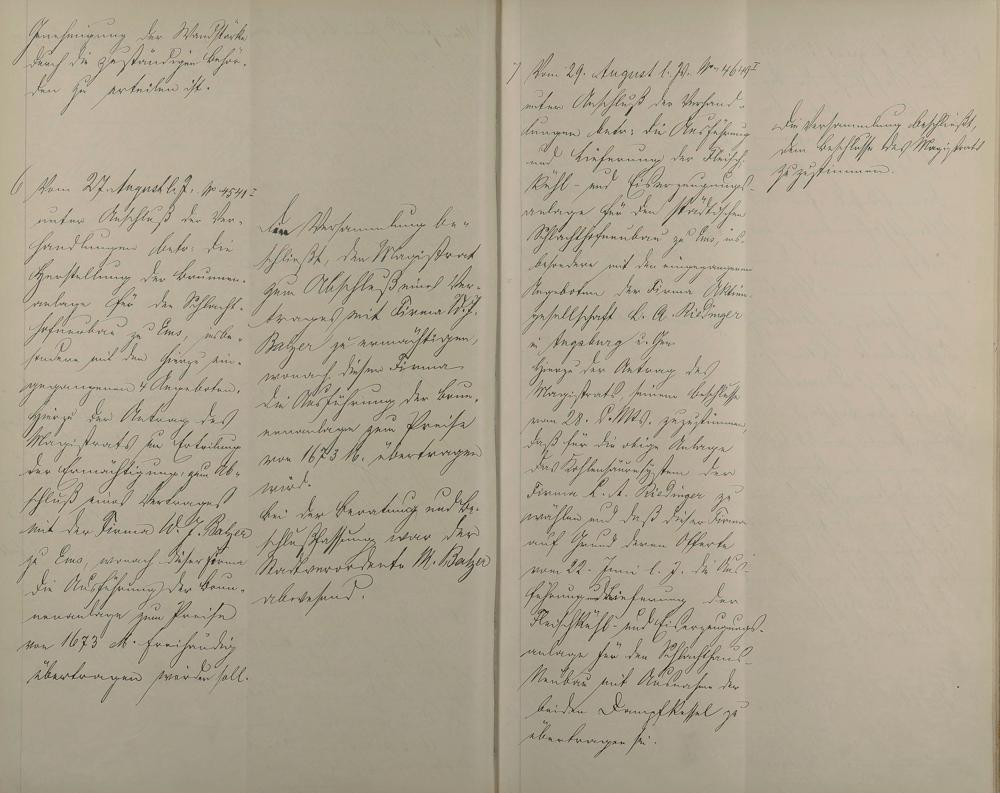 Genehmigung der Wandstärke
durch die zuständigen Behör-
den zu erteilen ist.
6 Vom 27. August l. J. No 4541 I
unter Anschluß der Ver-
handlungen betr: die
Herstellung der Brunnen-
anlage für den Schlacht-
hofneubau zu Ems, insbe-
sondere mit den hierzu ein-
gegangenen 4 Angeboten.
Hierzu der Antrag des
Magistrats um Erteilung
der Ermächtigung zum Ab-
schluß eines Vertrages
mit der Firma W. J. Balzer
zu Ems, wonach dieser Firma
die Ausführung der Brun-
nenanlage zum Preise
von 1673 M. freihändig
übertragen werden soll.
Die Versammlung be-
schließt, den Magistrat
zum Abschluß eines Ver-
trages mit Firma W. J.
Balzer zu ermächtigen,
wonach dieser Firma
die Ausführung der Brun-
nenanlage zum Preise
von 1673 M. übertragen
wird.
Bei der Beratung und Be-
schlußfassung war der
Stadtverordnete M. Balzer
abwesend.
7 Vom 29. August l. Js. No 4649 I
unter Anschluß der Verhand-
lungen betr: die Ausführung
und Lieferung der Fleisch-
kühl- und Eiserzeugungs-
anlage für den städtischen
Schlachthofneubau zu Ems, ins-
besondere mit den eingegangenen
Angeboten der Firma Aktien-
gesellschaft L. A. Riedinger
in Augsburg u. Gen.
Hierzu der Antrag des
Magistrats, seinem Beschlusse
vom 28. d. Mts. zuzustimmen,
daß für die obige Anlage
das Kohlensäuresystem der
Firma L. A. Riedinger zu
wählen und daß dieser Firma
auf Grund deren Offerte
vom 22. Juni l. J. die Aus-
führung und Lieferung der
Fleischkühl- und Eiserzeugungs-
anlage für den Schlachthaus-
Neubau mit Ausnahme der
beiden Dampfkessel zu
übertragen sei.
Die Versammlung beschließt,
dem Beschlusse des Magistrats
zuzustimmen.